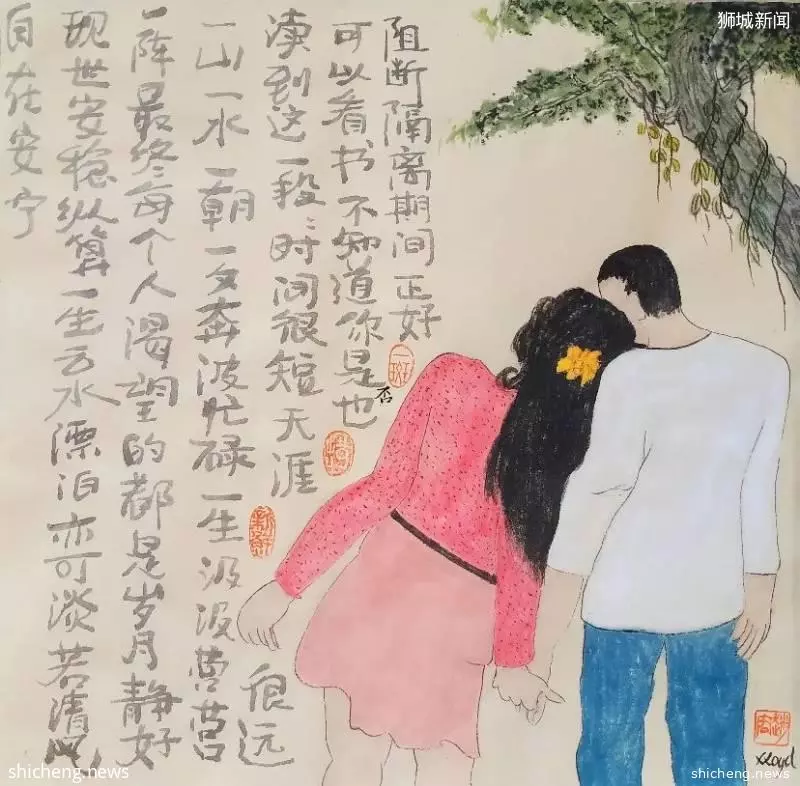 狮城新闻
阻断隔离期间正好
可以看书不知道你是否也
读到这一段:时间很短天涯
很远
一山一水一朝一夕奔波忙碌一生汲汲营营
一阵最终每个人渴望的都是岁月静好
现世安稳纵算一生云水漂泊亦可淡若清风
自在安宁
shicheng.news
shicheng.news